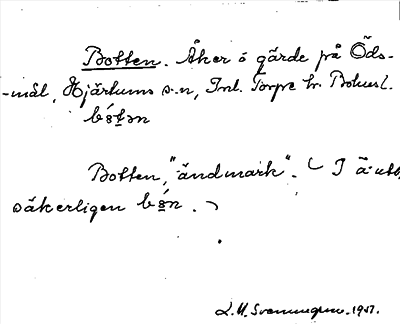 Botten. Åker o gärde på Öds-
-mål, Hjärtums s-n, Inl. Torpe hr. Bohusl.
bótən
Botten, "ändmark". ( I ä: utt.
säkerligen bón. )
1957.